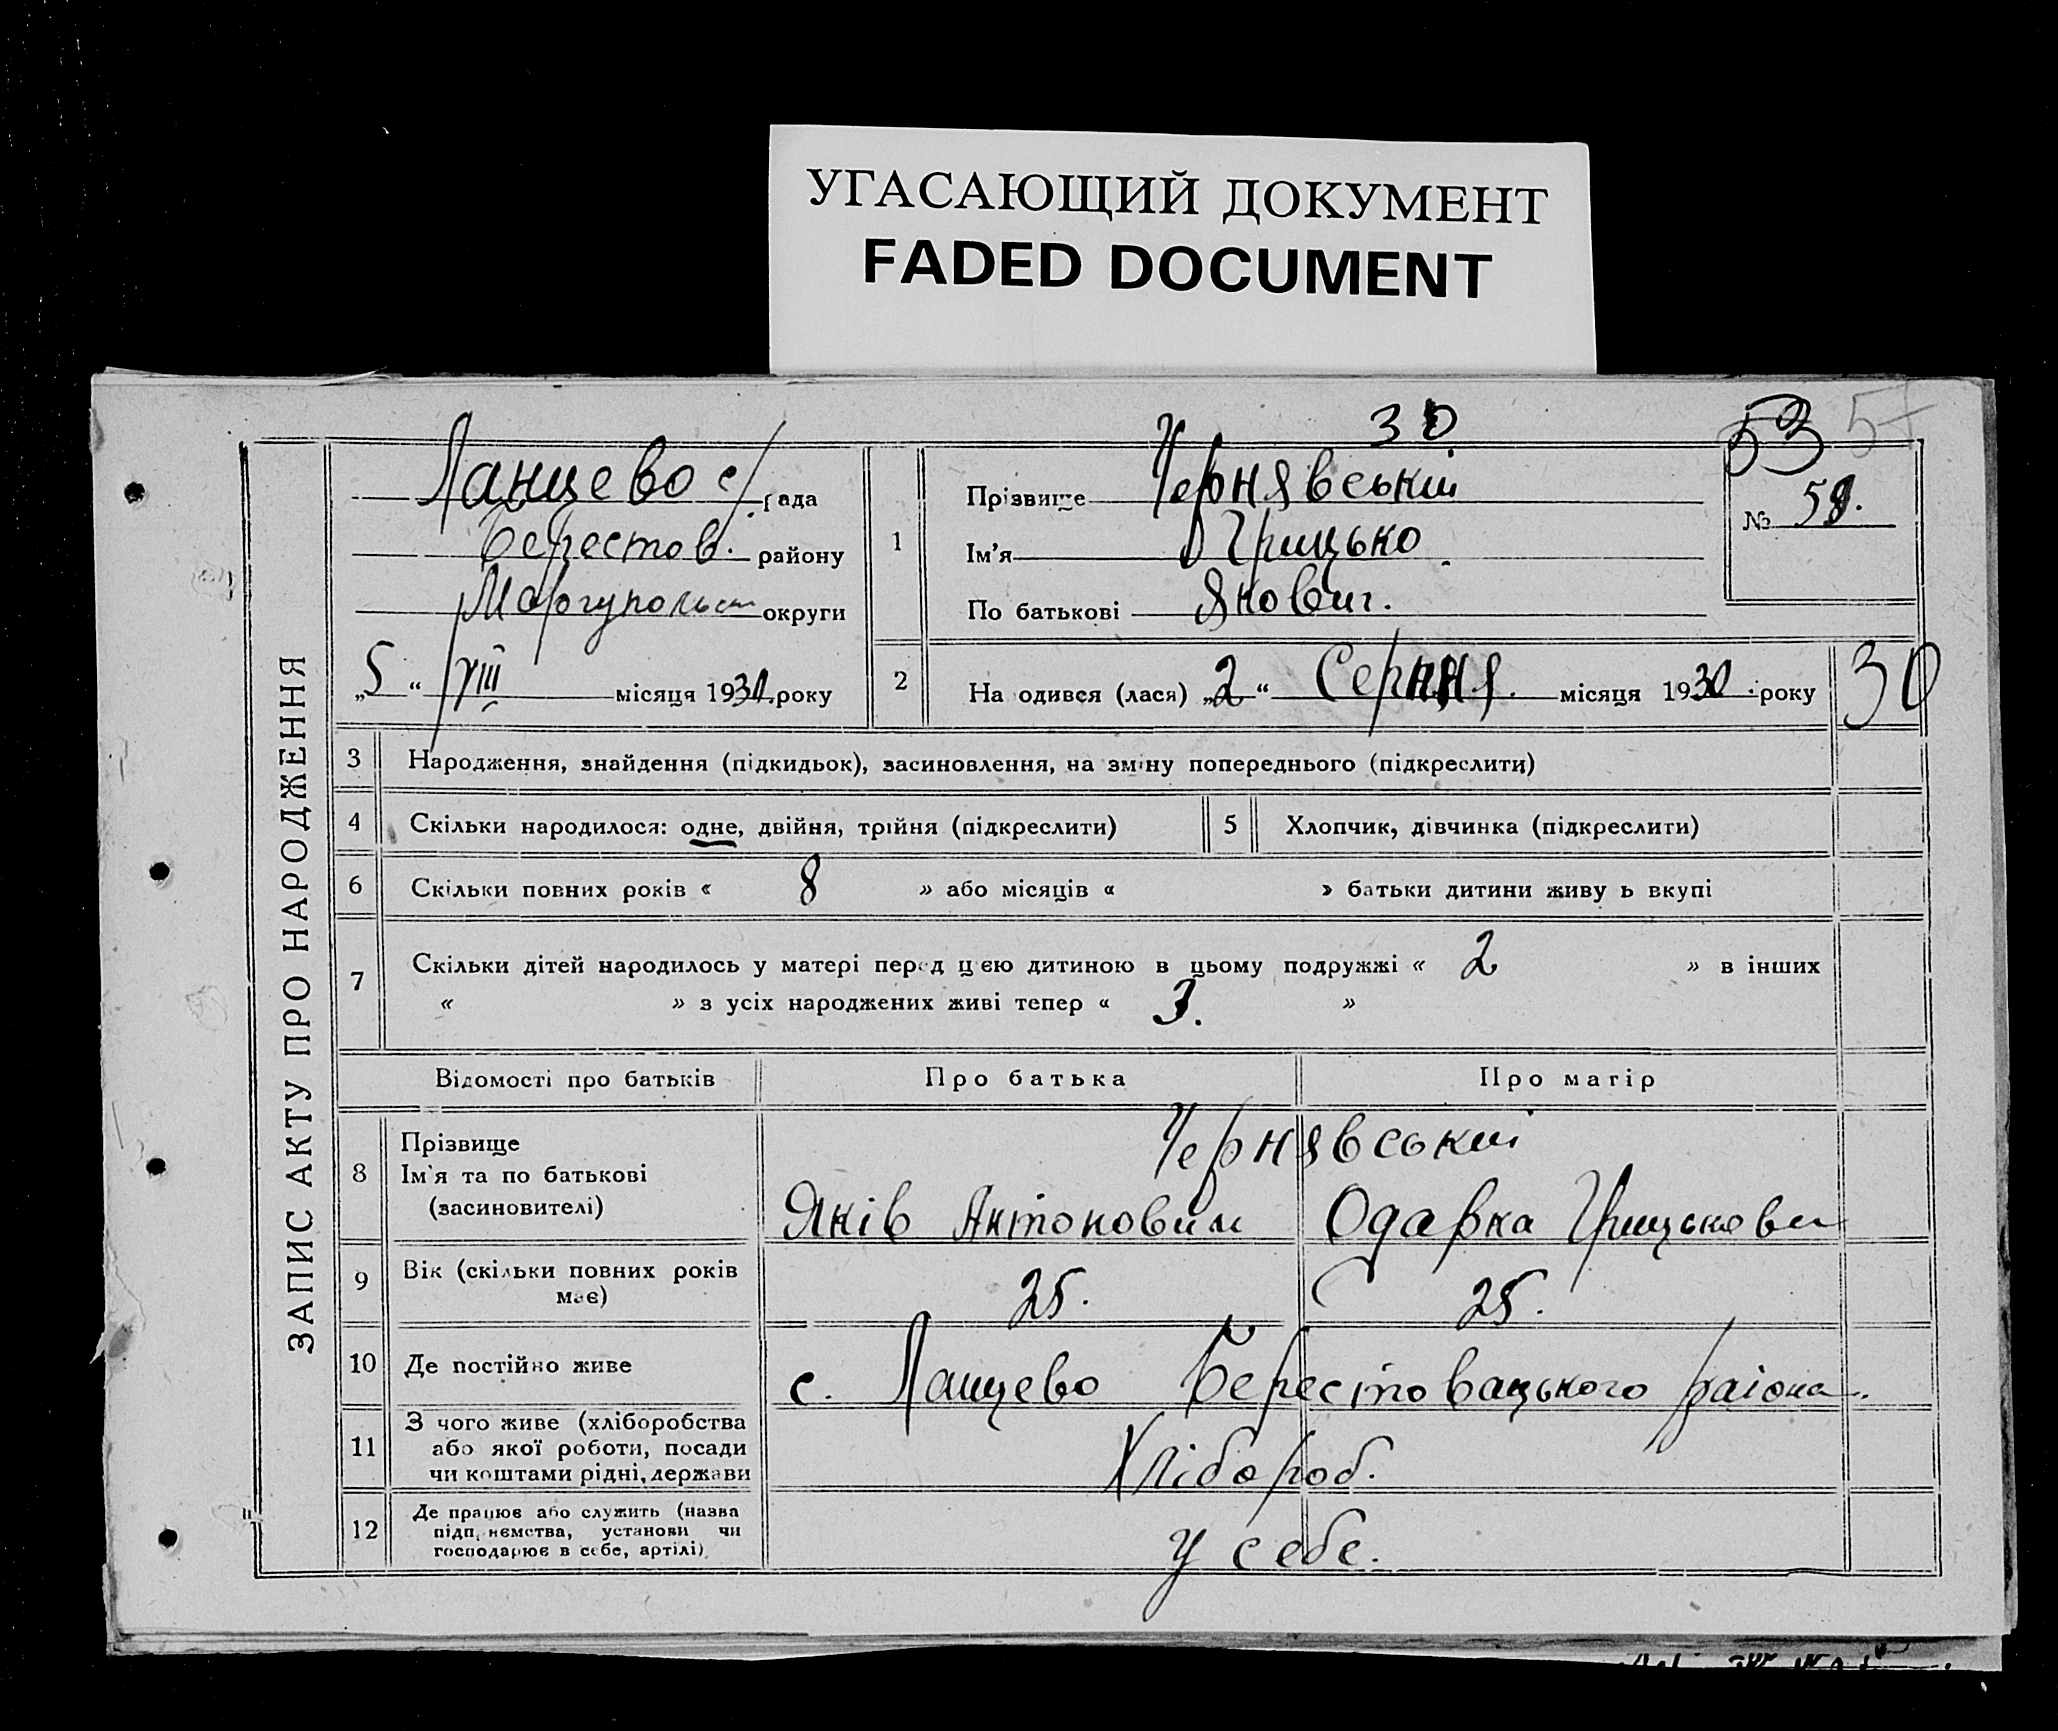 УГАСАЮЩИЙ ДОКУМЕНТ
FADED DOCUMENT
30
53
ЗАПИС АКТУ ПРО НАРОДЖЕННЯ
Ланцево с/рада
Берестов. району
округи
„5“ VIII місяця 1930 року
1
Прізвище Чернявський
Ім'я Грицько
По батькові Якович.
№ 58.
2
На одився (лася) „2“ Серпня. місяця 1930 року
30
3 Народження, знайдення (підкидьок), засиновлення, на зміну попереднього (підкреслити)
4 Скільки народилося: одне, двійня, трійня (підкреслити)
5 Хлопчик, дівчинка (підкреслити)
6 Скільки повних років « 8 » або місяців « » батьки дитини живу ь вкупі
7 Скільки дітей народилось у матері перед цією дитиною в цьому подружжі « 2 » в інших
« » з усіх народжених живі тепер « 3. »
Відомості про батьків Про батька Про матір
8 Прізвище Чернявські
Ім'я та по батькові
(засиновителі) Яків Антонович Одарка
9 Вік (скільки повних років
має) 25. 25.
10 Де постійно живе с. Ланцево Берестовацького раіона.
11 З чого живе (хліборобства
або якої роботи, посади
чи коштами рідні, держави Хлібороб.
12 Де працює або служить (назва
підприємства, установи чи
господарює в себе, артілі) у себе.